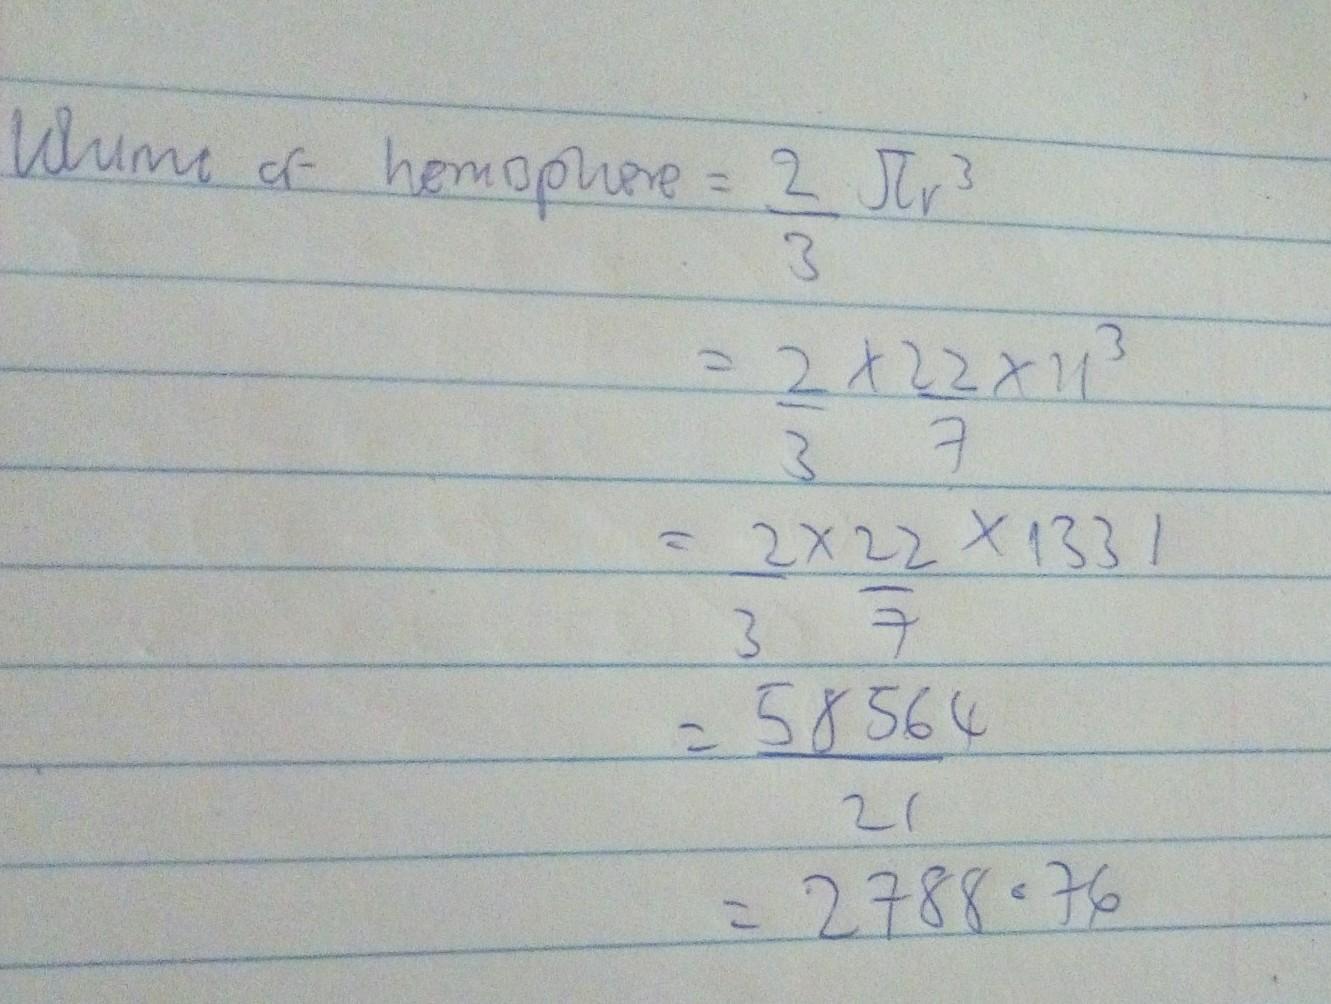 Volume of hemisphere = 2/3 πr³
= 2/3 × 22/7 × 11³
= 2/3 × 22/7 × 1331
= 58564/21
= 2788.76